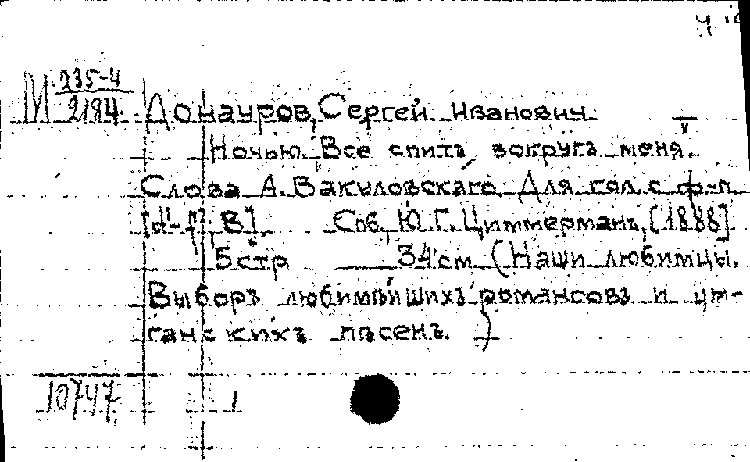 М 235-4
2184
Донауров, Сергей Иванович
Ночью. Все спитъ вокругъ меня.
Слова А. Вакуловскаго. Для гол. с ф-п.
[d'-f² В]. Спб. Ю.Г. Циммерманъ, [1888]
5 стр 34 см (Наши любимцы.
Выборъ любимѣйшихъ романсовъ и цы-
ганскихъ пѣсенъ.)
10747 1